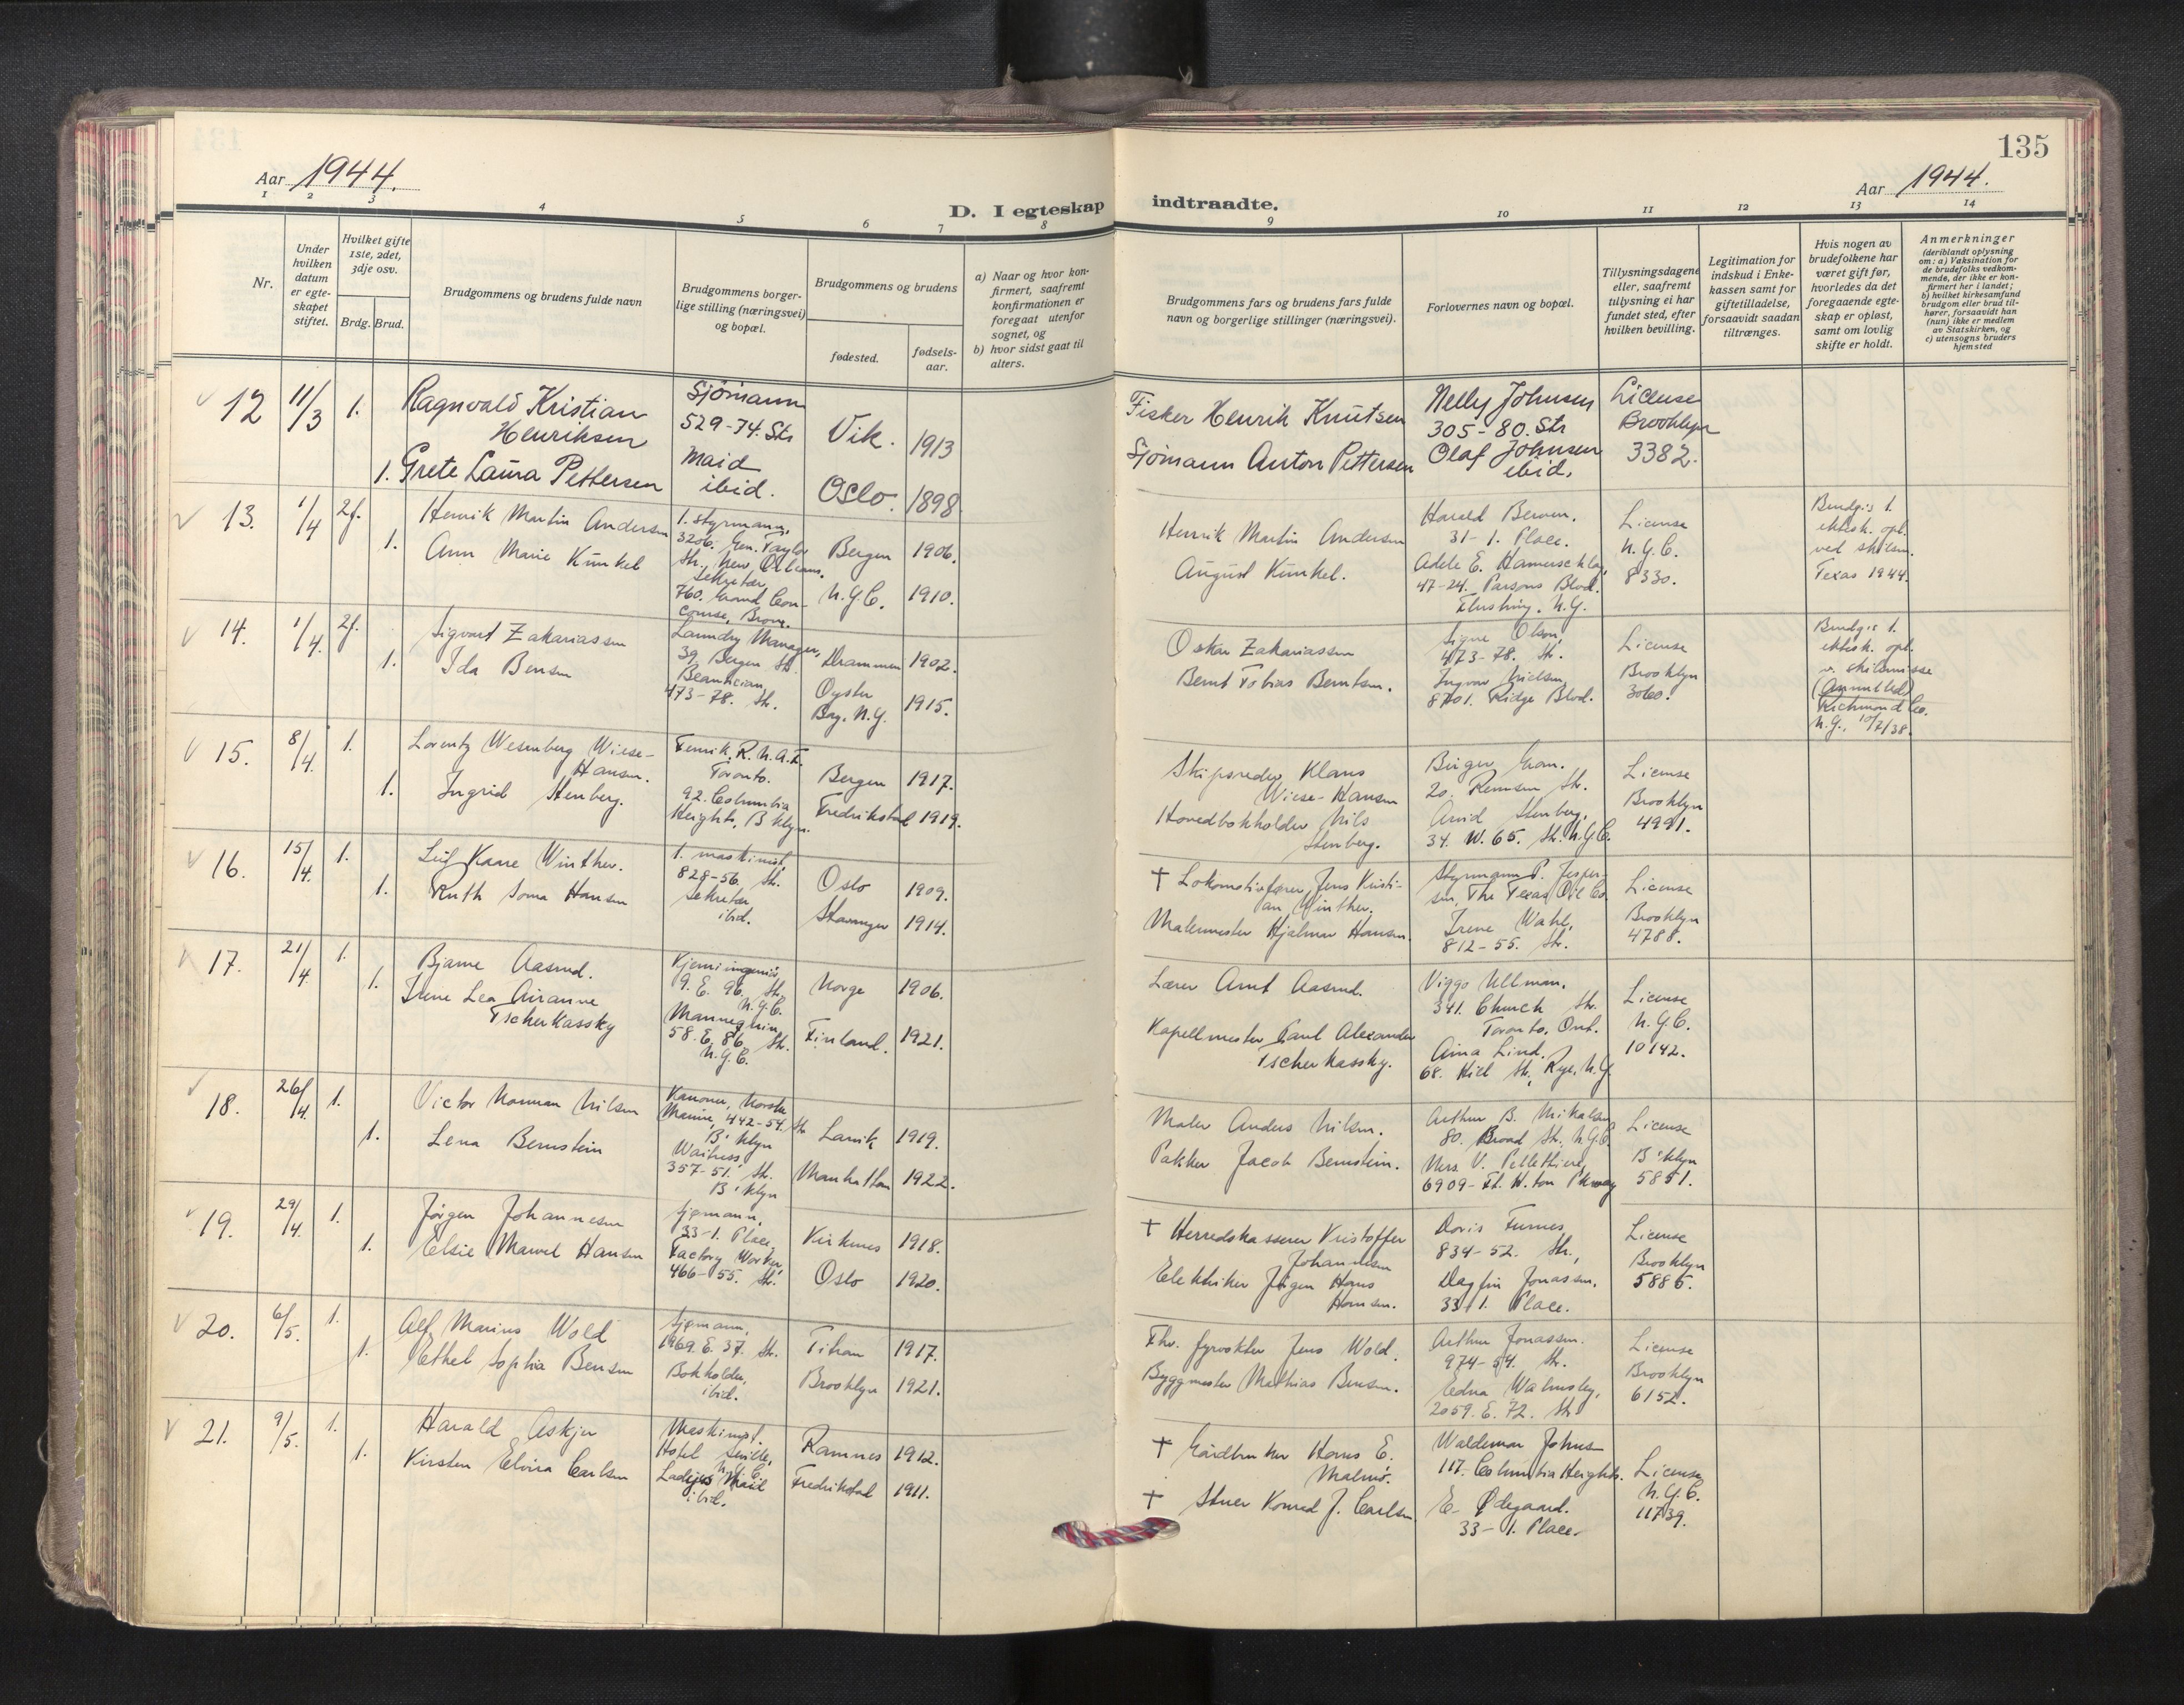 135
Aar 1944.
Aar 1944.
D. I egteskap indtraadte.
1 2 3 4 5 6 7 8 9 10 11 12 13 14
Nr.
Under hvilken datum er egteskapet stiftet.
Hvilket gifte 1ste, 2det, 3dje osv.
Brdg. Brud.
Brudgommens og brudens fulde navn
Brudgommens borgerlige stilling (næringsvei) og bopæl.
Brudgommens og brudens
fødested.
fødselsaar.
a) Naar og hvor konfirmert, saafremt konfirmationen er foregaat utenfor sognet, og
b) hvor sidst gaat til alters.
Brudgommens fars og brudens fars fulde navn og borgerlige stillinger (næringsvei).
Forlovernes navn og bopæl.
Tillysningsdagene eller, saafremt tillysning ei har fundet sted, efter hvilken bevilling.
Legitimation for indskud i Enkekassen samt for giftetilladelse, forsaavidt saadan tiltrænges.
Hvis nogen av brudefolkene har været gift før, hvorledes da det foregaaende egteskap er opløst, samt om lovlig skifte er holdt.
Anmerkninger
(deriblandt oplysning om: a) Vaksination for de brudefolks vedkommende, der ikke er konfirmert her i landet;
b) hvilket kirkesamfund brudgom eller brud tilhører, forsaavidt han (hun) ikke er medlem av Statskirken, og
c) utensogns bruders hjemsted
12 11/3 1. Ragnvald Kristian Henriksen
Sjömann 529-74. Str
Vik. 1913
Fisker Henrik Knutsen
Nelly Johnsen 305-80. Str
License Brooklyn 3382.
1. Grete Laura Pettersen
Maid ibid.
Oslo. 1898
Sjömann Anton Pettersen
Olaf Johnsen ibid.
13. 1/4 2g. Henrik Martin Andersen
1. styrmann, 3206. Gen. Taylor Str., New Orleans.
Bergen 1906.
Henrik Martin Andersen
Harald Berven. 31-1. Place.
License N.Y.C. 8330.
Brudg.s 1. ektesk. opl. ved skilsm. Texas 1944.
1. Ann Marie Kunkel
Sekretær, 760. Grand Concourse, Bronx.
N.Y.C. 1910.
August Kunkel.
Adele E. 47-24. Parsons Blvd. Flushing. N.Y.
14. 1/4 2g. Sigvart Zakariassen
Laundry Manager, 39. Bergen Str.
Drammen 1902.
Oskar Zakariassen
Signe Olsen, 473-78. Str.
License Brooklyn 3060.
Brudg.s 1. ektesk. opl. v. skilsmisse (Annulled) Richmond Co. N.Y., 10/2/38.
1. Ida Bensen
Beautician, 473-78. Str.
Oyster Bay. N.Y. 1915.
Bernt Tobias Berntsen.
Ingvar Nielsen, 8701. Ridge Blvd.
15. 8/4 1. Lorentz Wesenberg Wiese-Hansen.
Fenrik, R.N.A.F. Toronto.
Bergen 1917.
Skipsreder Klaus Wiese-Hansen
Birger Gran. 20. Remsen Str.
License Brooklyn 4991.
1. Ingrid Stenberg.
92. Columbia Heights, B'klyn.
Fredrikstad 1919.
Hovedbokholder Nils Stenberg.
Arvid Stenberg, 34. W. 65. Str. N.Y.C.
16. 15/4 1. Leif Kaare Winther.
1. maskinist, 828-56. Str.
Oslo 1909.
† Lokomotivfører Jens Kristian Winther.
Styrmann P. Jespersen, The Texas Oil Co.
License Brooklyn 4788.
1. Ruth Soma Hansen
Sekretær ibid.
Stavanger 1914.
Malermester Hjalmar Hansen.
Irene Wahl, 812-55. Str.
17. 21/4 1. Bjarne Aasrud.
Kjemiingeniör, 9. E. 96. Str. N.Y.C.
Norge 1906.
Lærer Arnt Aasrud.
Viggo Ullman. 341. Church Str. Toronto, Ont.
License N.Y.C. 10142.
1. Irene Lea Airanne Tscherkassky
Mannequin, 58. E. 86. Str. N.Y.C.
Finland. 1921.
Kapellmester Paul Alexander Tscherkassky.
Aina Lind. 68. Str., Rye, N.Y.
18. 26/4. 1. Victor Norman Nilsen
Kanoner, Norske Marine, 442-54. Str. B'klyn
Larvik 1919.
Maler Anders Nilsen.
Arthur B. Mikalsen 80. Broad Str., N.Y.C.
License B'klyn 5851.
1. Lena Bernstein
Waitress, 357-51. Str. B'klyn
Manhattan 1922.
Pakker Jacob Bernstein.
Mrs. V. Pellethiere, 6909- Ft. H.ton Pkway
19. 29/4 1. Jörgen Johannesen
Sjømann, 33-1. Place,
Kirkenes 1918.
† Herredskasserer Kristoffer Johannesen
Doris Furnes, 834-52. Str.,
License Brooklyn 5886.
1. Elsie Marvel Hansen
Factory Worker, 466-55. Str.
Oslo 1920.
Elektriker Jörgen Hans Hansen.
Dagfin Jonassen. 33-1. Place.
20. 6/5. 1. Alf Marius Wold
Sjømann, 1969. E. 37. Str.
Titran 1917.
Fhv. fyrvokter Jens Wold.
Arthur Jonassen. 974-54. Str.
License Brooklyn 6152.
1. Ethel Sophia Bensen
Bokholder, ibid.
Brooklyn 1921.
Byggmester Mathias Bensen.
Edna Walmsley, 2059. E. 72. Str
21. 9/5. 1. Harald Askjer
Maskinist. Hotel N.Y.C.
Ramnes 1912.
† Gårdbruker Hans E. Malmö.
Waldemar Johns 117. Columbia Heights.
License N.Y.C. 11739.
1. Kirsten Elvira Carlsen
Ladejes Maid ibid.
Fredrikstad 1911.
† Stuer Konrad J. Carlsen
E. Ødegaard. 33-1. Place.